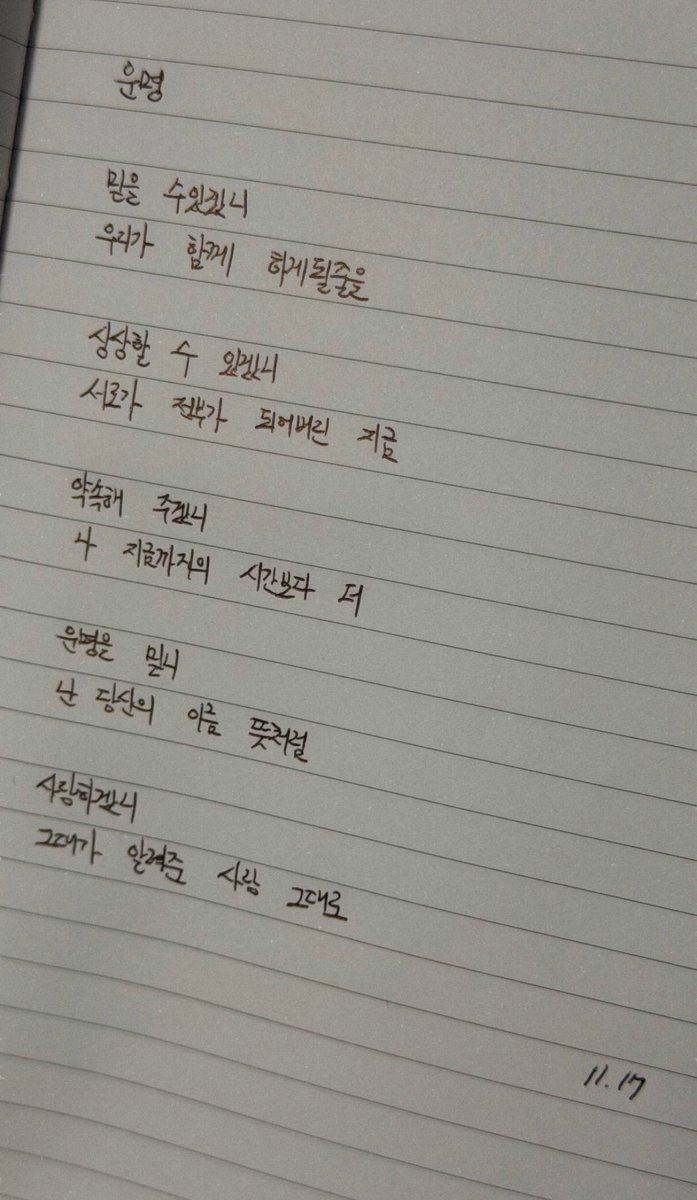 운명
믿을 수있겠니
우리가 함께 하게될줄을
상상할 수 있겠니
서로가 전부가 되어버린 지금
약속해 주겠니
나 지금까지의 시간보다 더
운명을 믿니
난 당신의 이름 뜻처럼
사랑하겠니
그대가 알려준 사랑 그대로
11.17